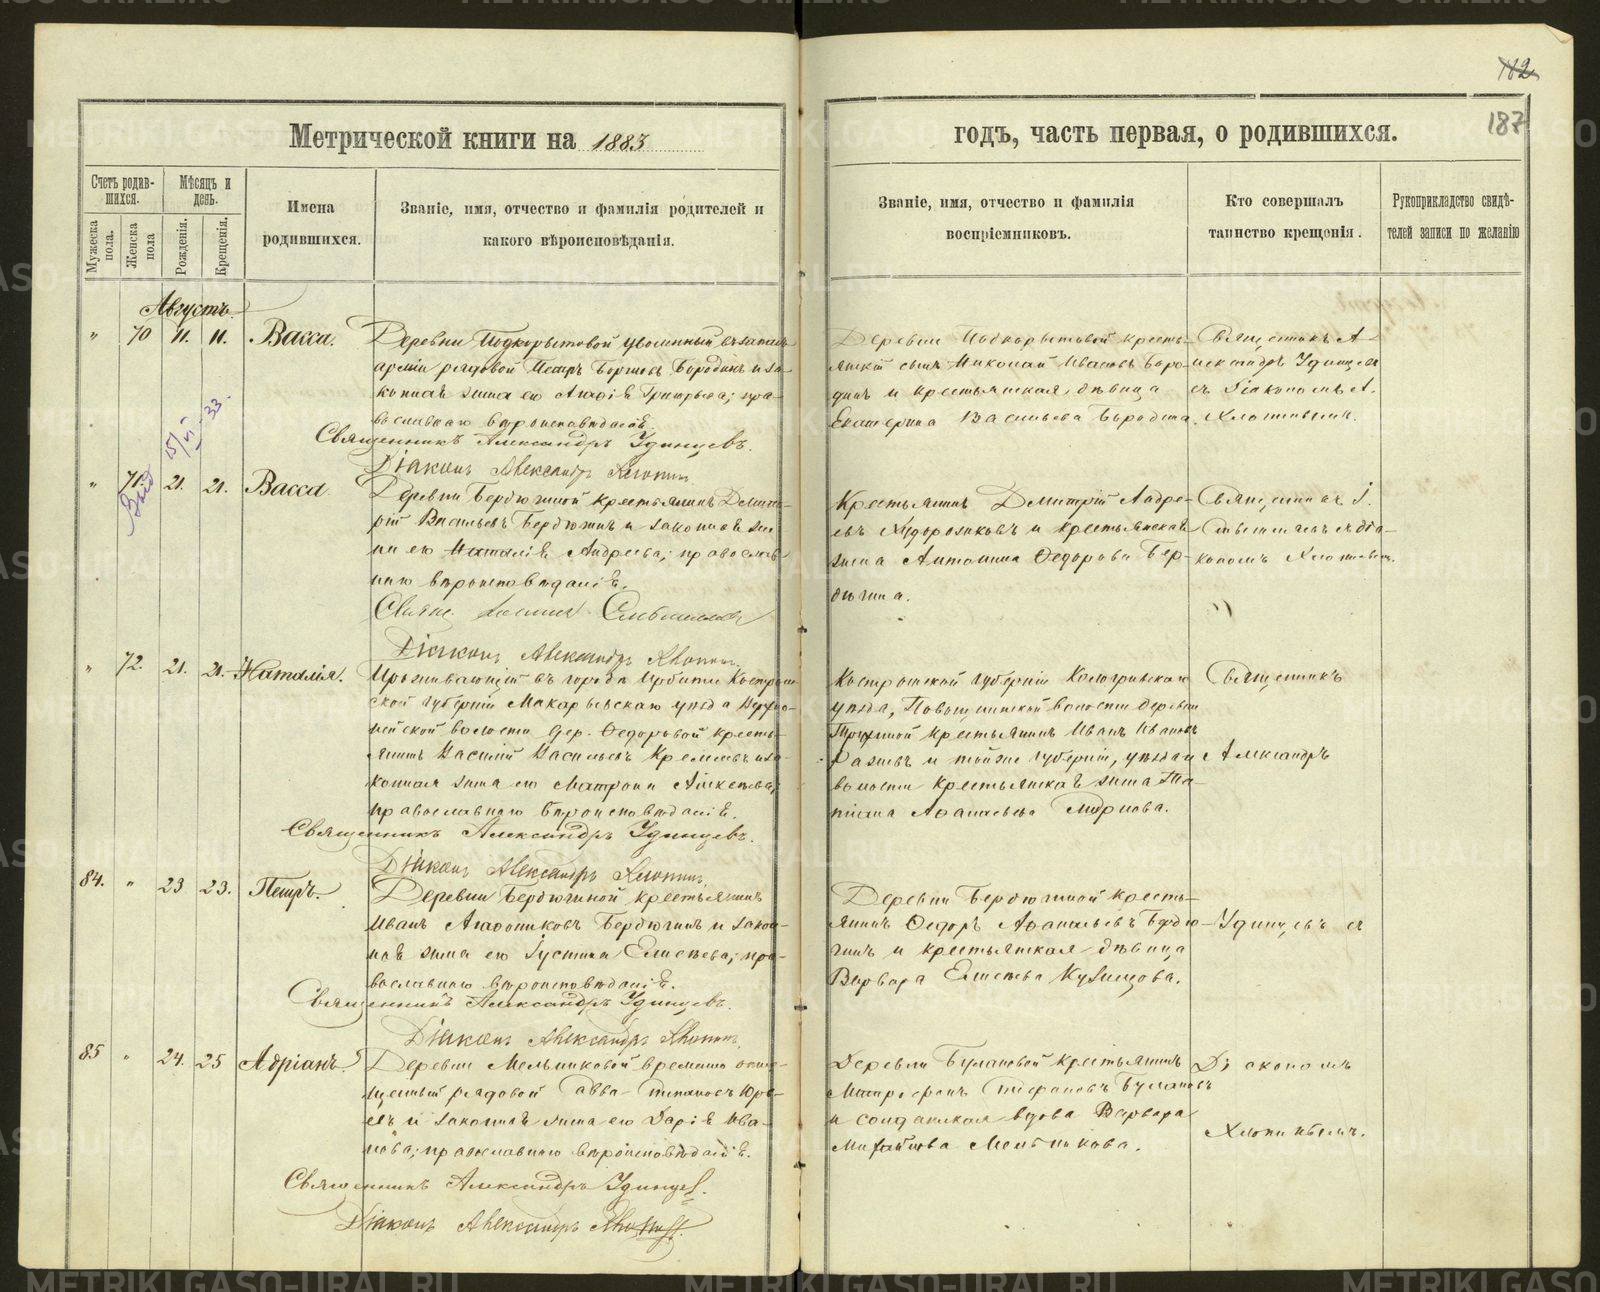 112
187
Метрической книги на 1883
годъ, часть первая, о родившихся.
Счетъ родившихся.
Мужеска пола.
Женска пола
Мѣсяцъ и день.
Рожденія.
Крещенія.
Имена родившихся.
Званіе, имя, отчество и фамилія родителей и
какого вѣроисповѣданія.
Званіе, имя, отчество и фамилія
воспріемниковъ.
Кто совершалъ
таинство крещенія.
Рукоприкладство свидѣ-
телей записи по желанію
Августъ.
" 70 11. 11. Васса.
Деревни Подкорытовой уволенный въ запасъ
арміи рядовой Петръ Бородинъ и за-
конная жена его Григорьева; пра-
вославнаго вѣроисповѣданія.
Священникъ Александръ Удинцевъ.
Діаконъ Александръ Хлопинъ
Деревни Подкорытовой кресть-
янскій сынъ Николай Ивановъ Боро-
динъ и крестьянская дѣвица
Екатерина Васильева Бородина.
Священникъ А-
лександръ Удинцевъ
съ діакономъ А.
Хлопинымъ.
15/VI-33.
" 71. 21. 21. Васса
Деревни Бердюгиной крестьянинъ Димит-
рій Васильевъ Бердюгинъ и законная же-
на его Наталія Андреева; православ-
наго вѣроисповѣданія.
Діаконъ Александръ Хлопинъ.
Крестьянинъ Димитрій Андре-
евъ Худорожковъ и крестьянская
жена Антонина Ѳедорова Бер-
дюгина.
Священникъ І.
съ діа-
кономъ Хлопинымъ.
" 72. 21. 21. Наталія.
Проживающій въ городѣ Ирбити Костром-
ской губерніи Макарьевскаго уѣзда
волости дер. Ѳедоровой кресть-
янинъ Василій Васильевъ и за-
конная жена его Матрона Алексѣева;
православнаго вѣроисповѣданія.
Священникъ Александръ Удинцевъ.
Діаконъ Александръ Хлопинъ.
Костромской губерніи Кологривскаго
уѣзда, волости деревни
крестьянинъ Иванъ Ивановъ
и тойже губерніи, уѣзда и
волости крестьянская жена Та-
тіана Аѳанасьева
Священникъ
Александръ
84. " 23 23. Петръ.
Деревни Бердюгиной крестьянинъ
Иванъ Бердюгинъ и закон-
ная жена его Іустина Елисѣева; пра-
вославнаго вѣроисповѣданія.
Священникъ Александръ Удинцевъ.
Діаконъ Александръ Хлопинъ.
Деревни Бердюгиной кресть-
янинъ Ѳедоръ Аѳанасьевъ Бердю-
гинъ и крестьянская дѣвица
Варвара Елисѣева Кузнецова.
Удинцевъ съ
85 " 24. 25 Адріанъ.
Деревни Мельниковой временно отпу-
щенный рядовой Савва Юрь-
евъ и законная жена его Дарія Ива-
нова; православнаго вѣроисповѣданія.
Священникъ Александръ Удинцевъ.
Діаконъ Александръ Хлопинъ.
Деревни Булановой крестьянинъ
Митрофанъ Булановъ
и солдатская вдова Варвара
Михайлова Мельникова.
Діакономъ
Хлопинымъ.